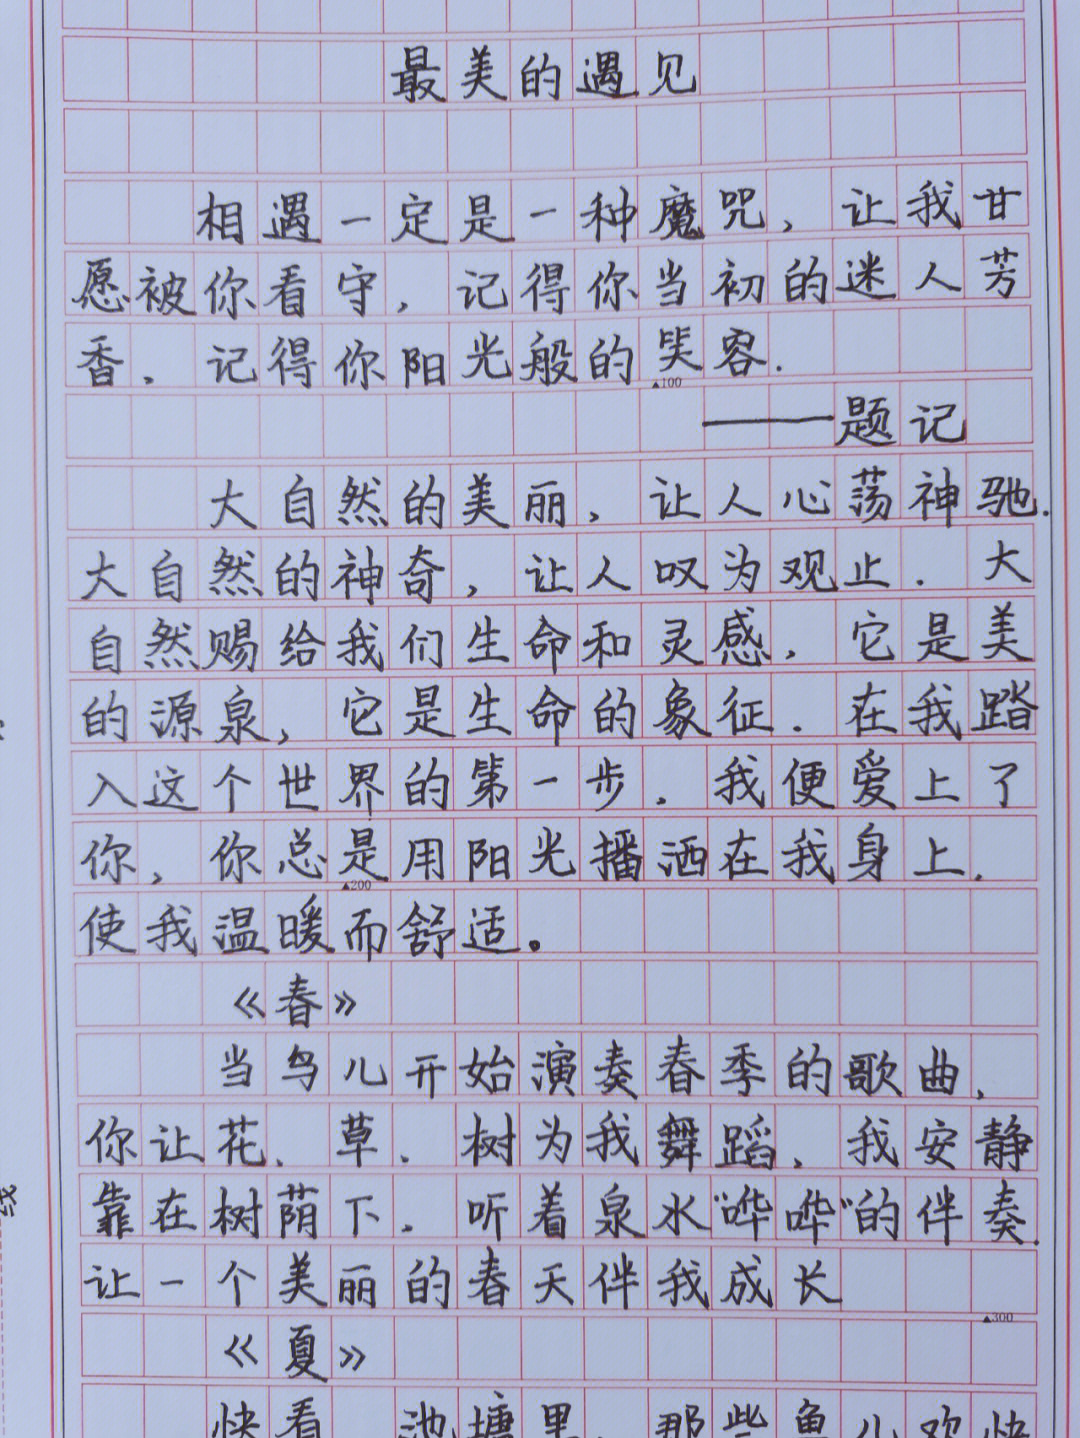 最美的遇见
相遇一定是一种魔咒，让我甘
愿被你看守，记得你当初的迷人芳
香，记得你阳光般的笑容.
▲100
——题记
大自然的美丽，让人心荡神驰.
大自然的神奇，让人叹为观止.大
自然赐给我们生命和灵感，它是美
的源泉，它是生命的象征.在我踏
入这个世界的第一步，我便爱上了
你，你总是用阳光播洒在我身上，
▲200
使我温暖而舒适。
《春》
当鸟儿开始演奏春季的歌曲，
你让花、草、树为我舞蹈，我安静
靠在树荫下，听着泉水“哗哗”的伴奏.
线
让一个美丽的春天伴我成长
▲300
《夏》
快看 池塘里，那些鱼儿欢快